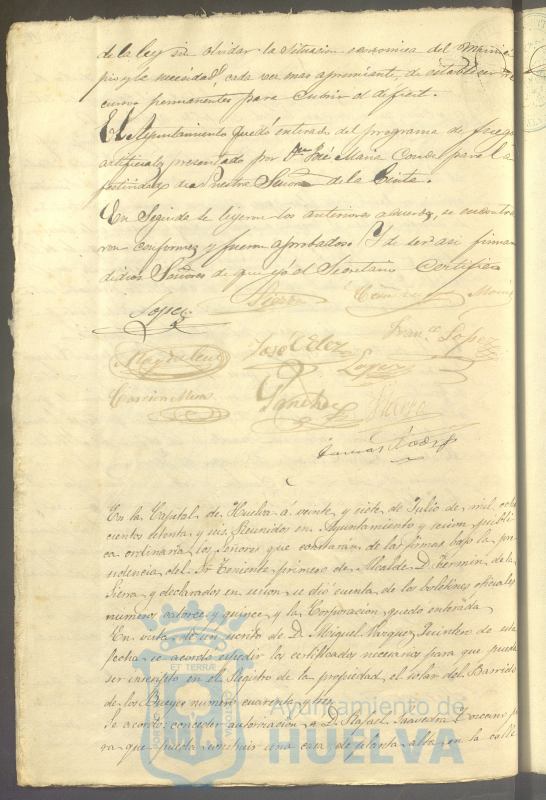 de la ley sin olvidar la situacion economica del Munici-
pio y la necesidad, cada vez mas apremiante, de establecer re-
cursos permanentes para cubrir el deficit.
El Ayuntamiento quedó enterado del programa de fuegos
artificiales presentado por Dn José Maria Conde para la
festividad de Nuestra Señora de la Cinta.
En Seguida se leyeron los anteriores acuerdos, se encontra-
ron conformes y fueron aprobados. Y de ser asi firman
dichos Señores de que yo el Secretario Certifico
Lopez
Sierra
Franco Lopez
Jose Celez
Lopez
Sanchez
Sierra
En la Capital de Huelva á veinte y siete de Julio de mil ocho
cientos setenta y seis. Reunidos en Ayuntamiento y sesion publi-
ca ordinaria los Señores que constarán de las firmas bajo la pre-
sidencia del Sr Teniente primero de Alcalde D. Fermin de la
Sierra y declarados en sesion se dió cuenta de los boletines oficiales
numeros catorce y quince y la Corporacion quedó enterada
En vista de un escrito de D. Miguel Vazquez Quintero de esta
fecha se acordó espedir los certificados necesarios para que pueda
ser inscripto en el Registro de la propiedad el solar del Barrido
de los Bueyes numero cuarenta y tres
Se acordó conceder autorizacion a D. Rafael Saavedra Toscano pa-
ra que pueda construir una casa de planta alta en la calle
Ayuntamiento de
HUELVA